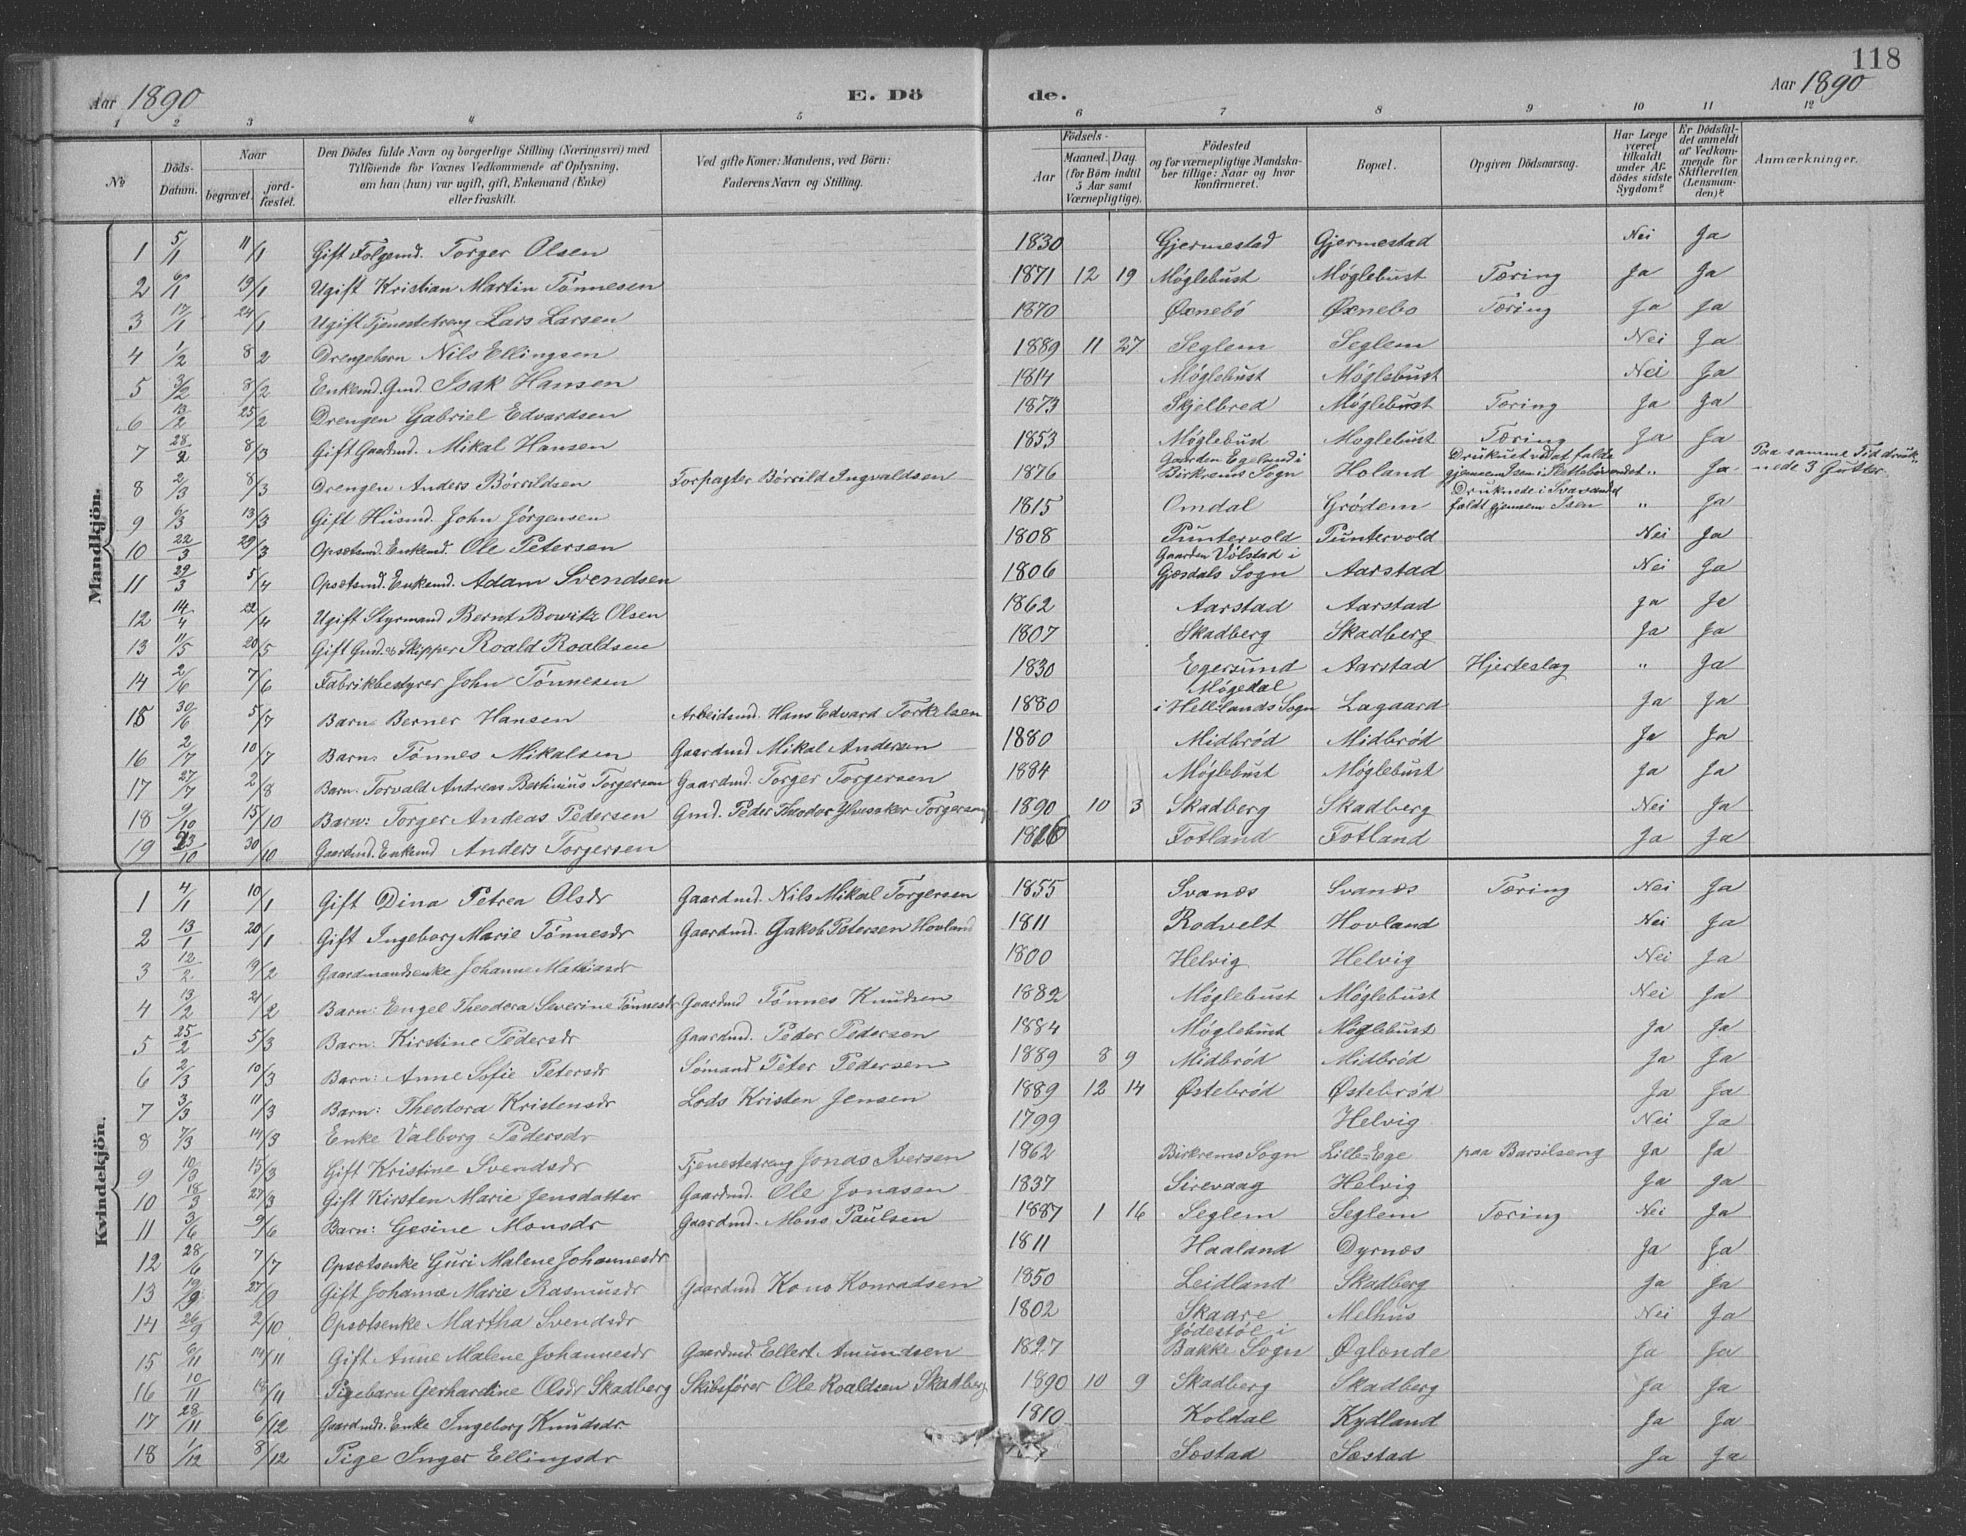 118
Aar 1890 E. Dö de. Aar 1890
1 2 3 4 5 6 7 8 9 10 11 12
No
Döds-Datum.
Naar
begravet.
jordfæstet.
Den Dödes fulde Navn og borgerlige Stilling (Næringsvei) med
Tilföiende for Voxnes Vedkommende af Oplysning,
om han (hun) var ugift, gift, Enkemand (Enke)
eller fraskilt.
Ved gifte Koner: Mandens, ved Börn:
Faderens Navn og Stilling.
Födsels-
Aar
Maaned. Dag.
(for Börn indtil
5 Aar samt
Værnepligtige).
Födested
og for værnepligtige Mandska-
ber tillige: Naar og hvor
konfirmeret.
Bopæl.
Opgiven Dödsaarsag.
Har Læge
været
tilkaldt
under Af-
dödes sidste
Sygdom?
Er Dödsfal-
det anmeldt
af Vedkom-
mende for
Skifteretten
(Lensman-
den)?
Anmærkninger.
Mandkjön.
1 5/1 11/1 Gift Folgemd. Torger Olsen 1830 Gjermestad Gjermestad Nei Ja
2 6/1 13/1 Ugift Kristian Martin Tönnesen 1871 12 19 Møglebust Møglebust Tæring Ja Ja
3 17/1 24/1 Ugift Tjenestedreng Lars Larsen 1870 Øxnebö Øxnebo Tæring Ja Ja
4 1/2 8/2 Drengebarn Nils Ellingsen 1889 11 27 Seglem Seglem Nei Ja
5 3/2 8/2 Enkemd. Gmd. Isak Hansen 1814 Møglebust Møglebust Nei Ja
6 13/2 25/2 Drengen Gabriel Edvardsen 1873 Skjelbred Møglebust Tæring Ja Ja
7 28/2 8/3 Gift Gaardmd. Mikal Hansen 1853 Møglebust Moglebust Tæring Ja Ja
8 2/3 8/3 Drengen Anders Börrildsen Forpagter Börrild Ingvaldsen 1876 Gaarden Egeland i Birkrems Sogn Holand Druknet ved at falde gjennem Isen i Slettebövandet " Ja Paa samme Tid druknede 3 Gutter.
9 6/3 13/3 Gift Husmd. John Jörgensen 1815 Omdal Grödem Druknede i Svavandet faldt gjennem Isen " Ja
10 22/3 29/3 Opsætsmd. Enkemd. Ole Petersen 1808 Puntervold Puntervold Nei Ja
11 29/3 5/4 Opsætsmd. Enkemd. Adam Svendsen 1806 Gaarden Völstad i Gjesdals Sogn Aarstad Nei Ja
12 14/4 22/4 Ugift Styrmand Bernt Bowitz Olsen 1862 Aarstad Aarstad Ja Ja
13 11/5 20/5 Gift Gmd. & Skipper Roald Roaldsen 1807 Skadberg Skadberg Ja Ja
14 2/6 7/6 Fabrikbestyrer John Tönnesen 1830 Egersund Aarstad Hjerteslag " Ja
15 30/6 5/7 Barn Berner Hansen Arbeidsmd. Hans Edvard Torkelsen 1880 Møgedal i Hellelands Sogn Lagaard Ja Ja
16 2/7 10/7 Barn: Tönnes Mikalsen Gaardmd Mikal Andersen 1880 Midbröd Midbröd Ja Ja
17 27/7 2/8 Barn: Torvald Andreas Bertinius Torgersen Gaardmd. Torger Torgersen 1884 Møglebust Møglebust Ja Ja
18 9/10 15/10 Barn: Torger Andeas Pedersen Gmd. Peder Theodor Torgersen 1890 10 3 Skadberg Skadberg Nei Ja
19 23/10 30/10 Gaardmd. Enkemd Anders Torgersen 1816 Fotland Fotland Ja Ja
Kvindekjön.
1 4/1 10/1 Gift Dina Petrea Olsdr Gaardmd. Nils Mikal Torgersen 1855 Svanæs Svanæs Tæring Nei Ja
2 13/1 20/1 Gift Ingeborg Marie Tönnesdr Gaardmd. Jakob Petersen Hovland 1811 Rodvelt Hovland Nei Ja
3 12/2 19/2 Gaardmandsenke Johanne Mathiasdr 1800 Helvig Helvig Nei Ja
4 13/2 21/2 Barn: Eengel Theodora Severine Tönnesdr Gaardmd Tönnes Knudsen 1882 Møglebust Møglebust Nei Ja
5 25/2 5/3 Barn: Kirstine Pedersdr Gaardmd. Peder Pedersen 1884 Møglebust Møglebust Ja Ja
6 2/3 10/3 Barn: Anne Sofie Petersdr Sömand Peter Pedersen 1889 8 9 Midbröd Midbröd Ja Ja
7 3/3 11/3 Barn: Theodora Kristensdr Lods Kristen Jensen 1889 12 14 Østebröd Østebröd Ja Ja
8 7/3 14/3 Enke Valborg Pedersdr 1799 Helvig Nei Ja
9 10/3 15/3 Gift Kristine Svendsdr Tjenestedreng Jonas Iversen 1862 Birkrems Sogn Lille-Ege paa Barsilseng Ja Ja
10 18/3 27/3 Gift Kirsten Marie Jensdatter Gaardmd. Ole Jonasen 1837 Sirevaag Helvig Ja Ja
11 3/6 9/6 Barn: Gesine Monsdr Gaardmd. Mons Paulsen 1887 1 16 Seglem Seglem Tæring Nei Ja
12 28/6 7/7 Opsætsenke Guri Malene Johannesdr 1811 Haaland Dyrnæs Ja Ja
13 19/9 27/9 Gift Johanne Marie Rasmusdr Gaardmd Kono Konradsen 1850 Leidland Skadberg Ja Ja
14 26/9 2/10 Opsætsenke Martha Svendsdr 1802 Skaare Melhus Nei Ja
15 6/11 14/11 Gift Anne Malene Johannesdr Gaardmd. Ellert Amundsen 1827 Jödestöl i Bakke Sogn Øglænde Ja Ja
16 10/11 18/11 Pigebarn Gerhardine Olsdr Skadberg Skibsförer Ole Roaldsen Skadberg 1890 10 9 Skadberg Skadberg Ja Ja
17 28/11 6/12 Gaardmds. Enke Ingeborg Knudsdr 1810 Koldal Kydland Ja Ja
18 1/12 8/12 Pige Inger Ellingsdr Sæstad Sæstad Ja Ja